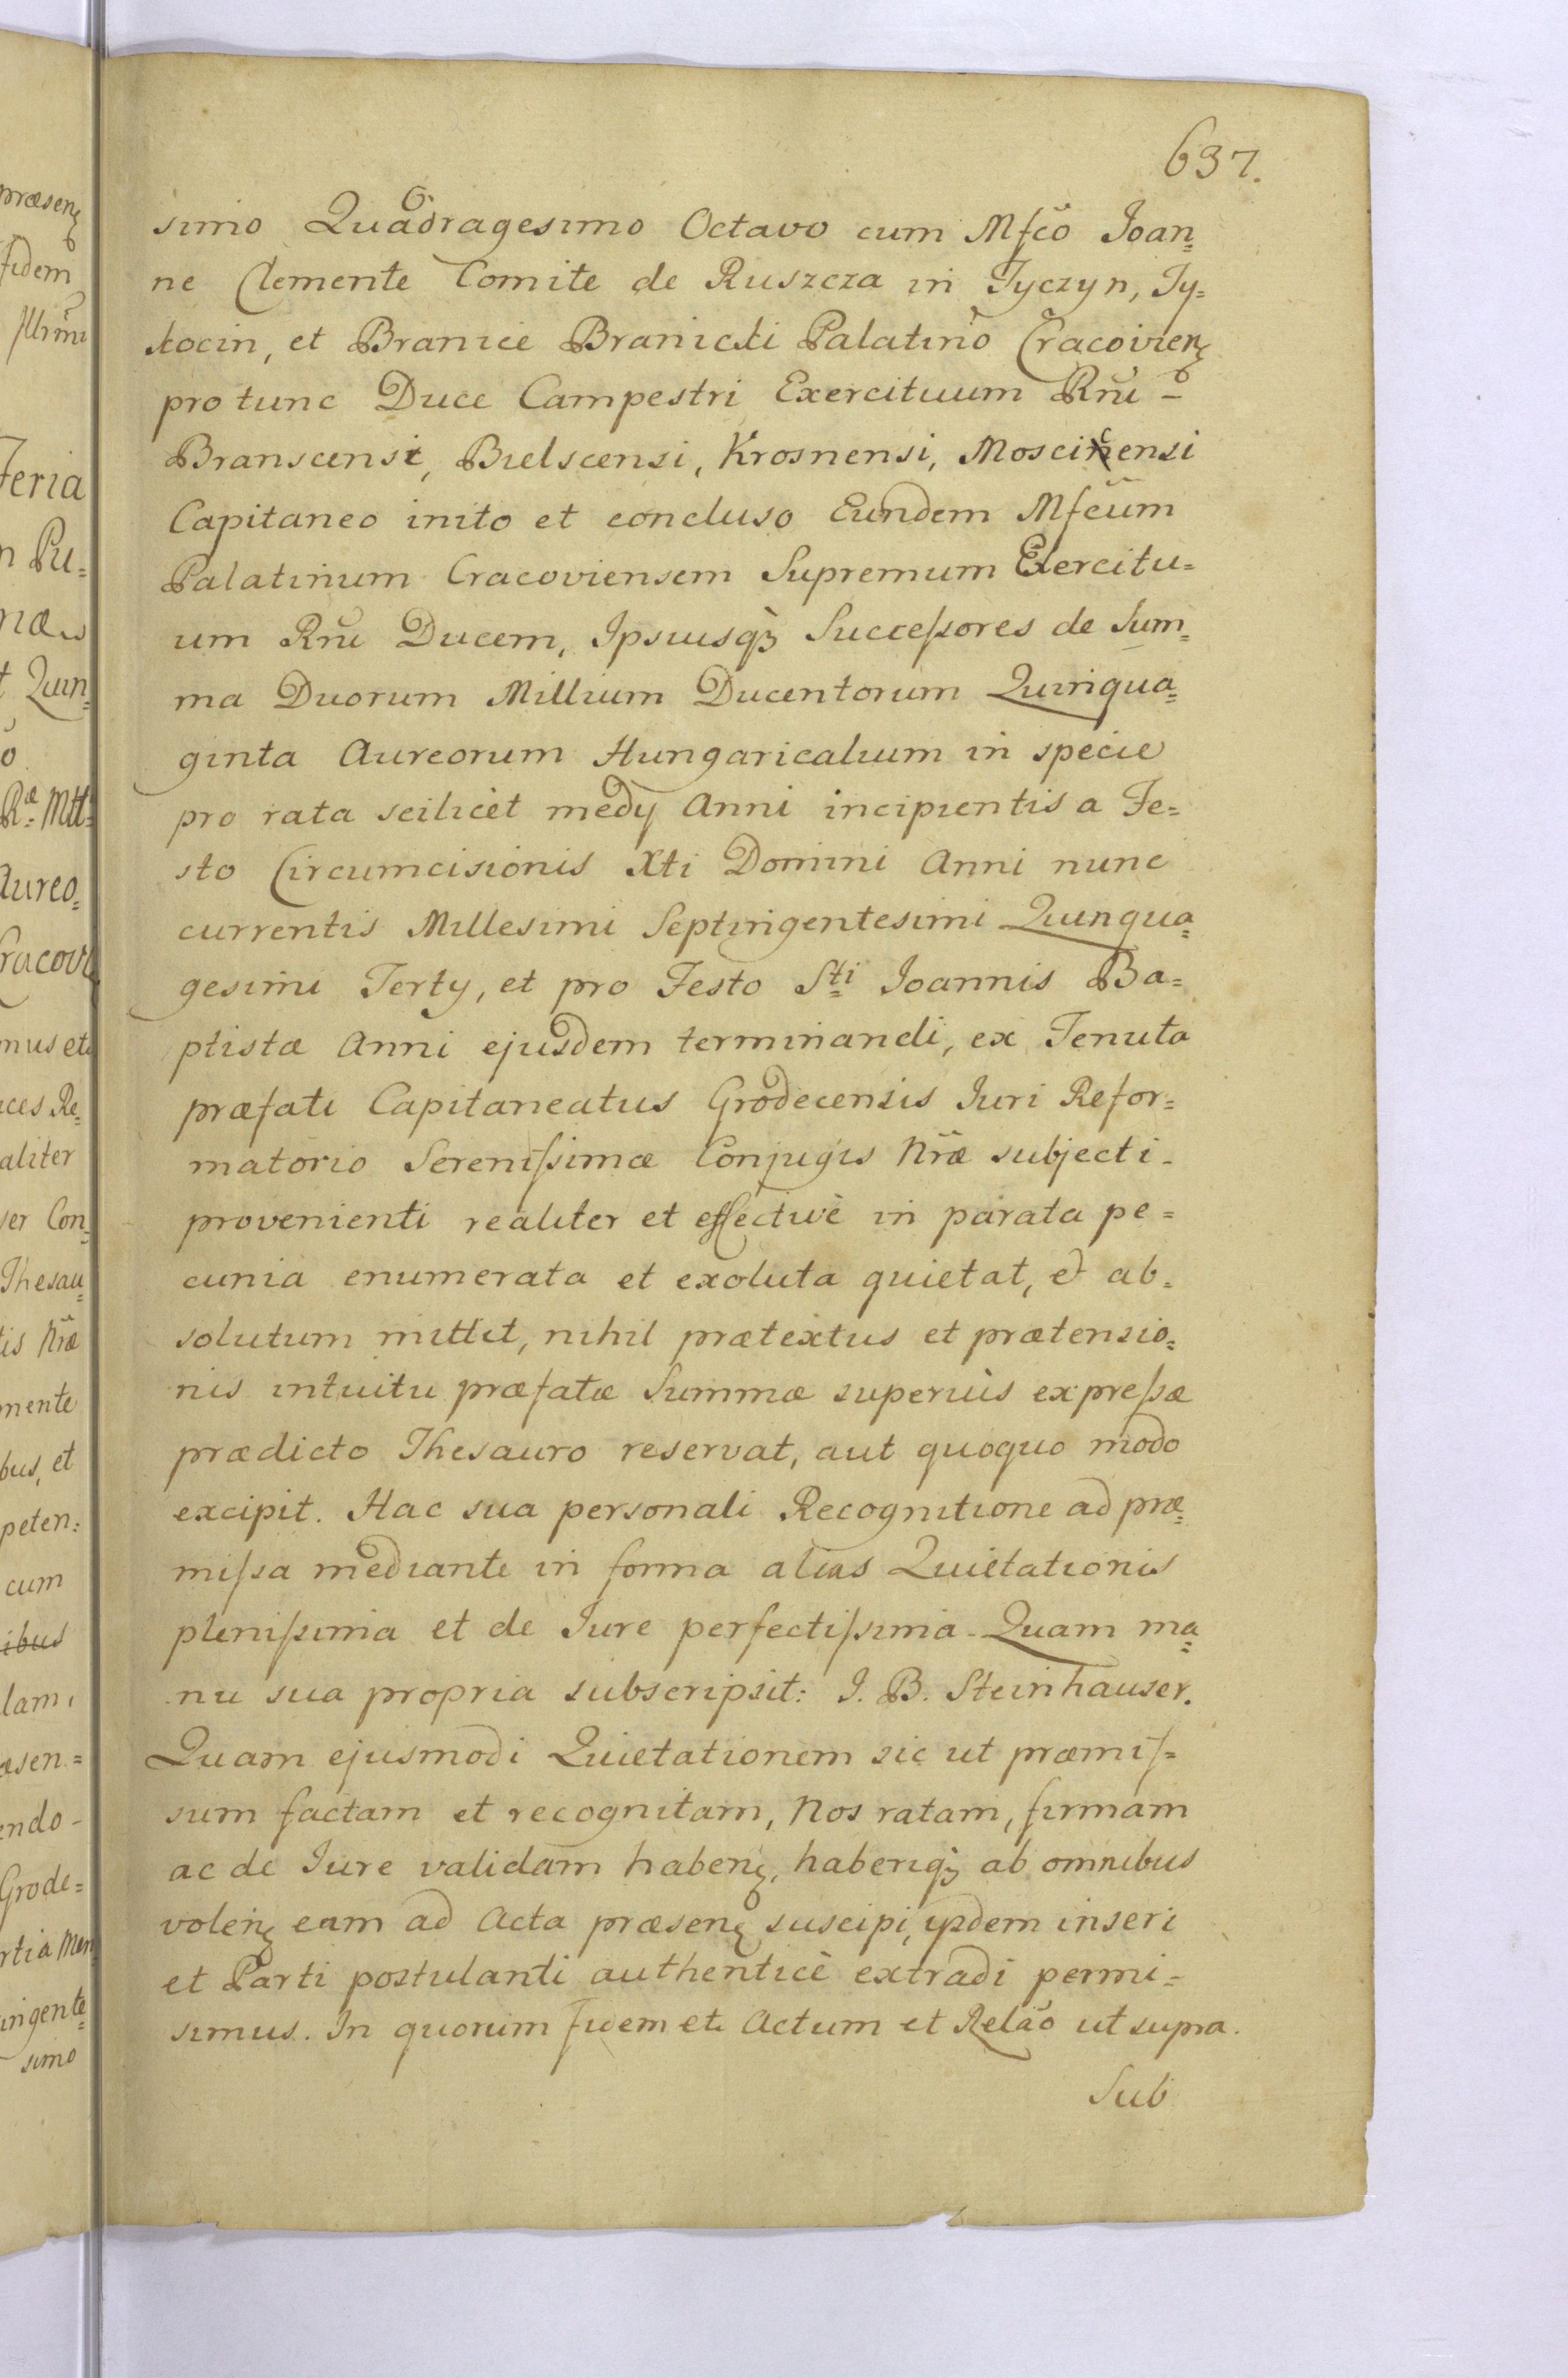 637.
simo Quadragesimo Octavo cum Mfcõ Ioan=
ne Clemente Comite de Ruszcza in Tyczyn, Ty=
kocin, et Branice Branicki Palatino Cracovien̄
pro tunc Duce Campestri Exercituum Rñi -
Branscensi, Bielscensi, Krosnensi, Moscicensi
Capitaneo inito et concluso Eundem Mfcũm
Palatinum Cracoviensem Supremum Exercitu=
um Rñi Ducem, Ipsiusq̃ Succeſsores de Sum=
ma Duorum Millium Ducentorum Quinqua=
ginta Aureorum Hungaricalium in specie
pro rata scilicèt medy Anni incipientis a Fe=
sto Circumcisionis Xti Domini Anni nunc
currentis Millesimi Septingentesimi Quinqua=
gesimi Terty, et pro Festo Sti Ioannis Ba=
ptistæ Anni ejusdem terminandi, ex Tenuta
præfati Capitaneatus Grodecensis Iuri Refor=
matorio Sereniſsimæ Conjugis Nr̃æ subjecti -
provenienti realiter et effectivè in parata pe=
cunia enumerata et exoluta quietat, & ab=
solutum mittit, nihil prætextus et prætensio=
nis intuitu præfatæ Summæ superiùs expreſsæ
prædicto Thesauro reservat, aut quoquo modo
excipit. Hac sua personali Recognitione ad præ=
miſsa mediante in forma alias Quietationis
pleniſsima et de Iure perfectiſsima - Quam ma=
nu sua propria subscripsit: I. B. Steinhauser.
Quam ejusmodi Quietationem sic ut præmiſ=
sum factam et recognitam, Nos ratam, firmam
ac de Iure validam haben̄, haberiq̃ ab omnibus
volen̄ eam ad Acta præsen̄ suscipi, ijsdem inseri
et Parti postulanti authenticè extradi permi=
simus. In quorum fidem etc Actum et Relão ut supra.
Sub